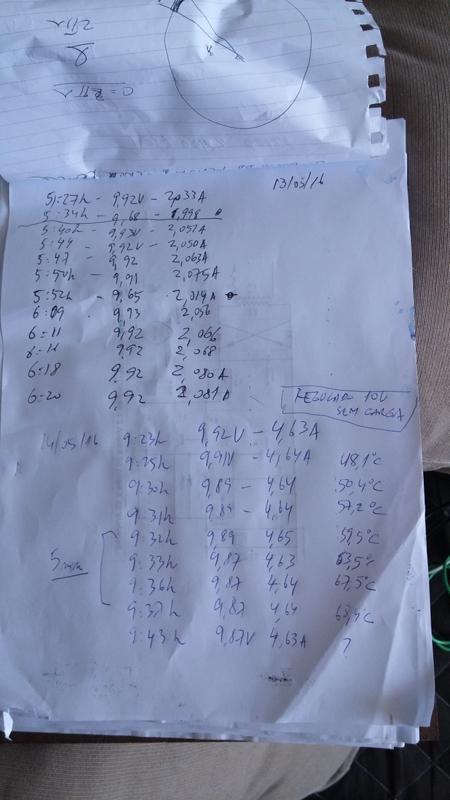 C = 2πr
r
2πr
13/05/16
5:27h - 9,92V - 2,033A
5:34h - 9,68 - 1,998
5:40h - 9,93V - 2,051A
5:44 - 9,92V - 2,050A
5:47 - 9,92 2,063A
5:50h - 9,91 2,075A
5:52h - 9,65 2,019A
6:09 9,93 2,056
6:11 9,92 2,066
9,92 2,068
6:18 9,92 2,080A
6:20 9,92 2,081A
REGULADO 10V
SEM CARGA
14/05/16 9:23h 9,92V - 4,63A
9:25h 9,91V - 4,64A 48,1°C
9:30h 9,89 - 4,64 50,4°C
9:31h 9,89 - 4,64 57,2°C
9:32h 9,89 4,65 59,5°C
5min 9:33h 9,87 4,63 63,5°C
9:36h 9,87 4,64 67,5°C
9:37h 9,87 4,64
9:43h 9,87V 4,63A ?